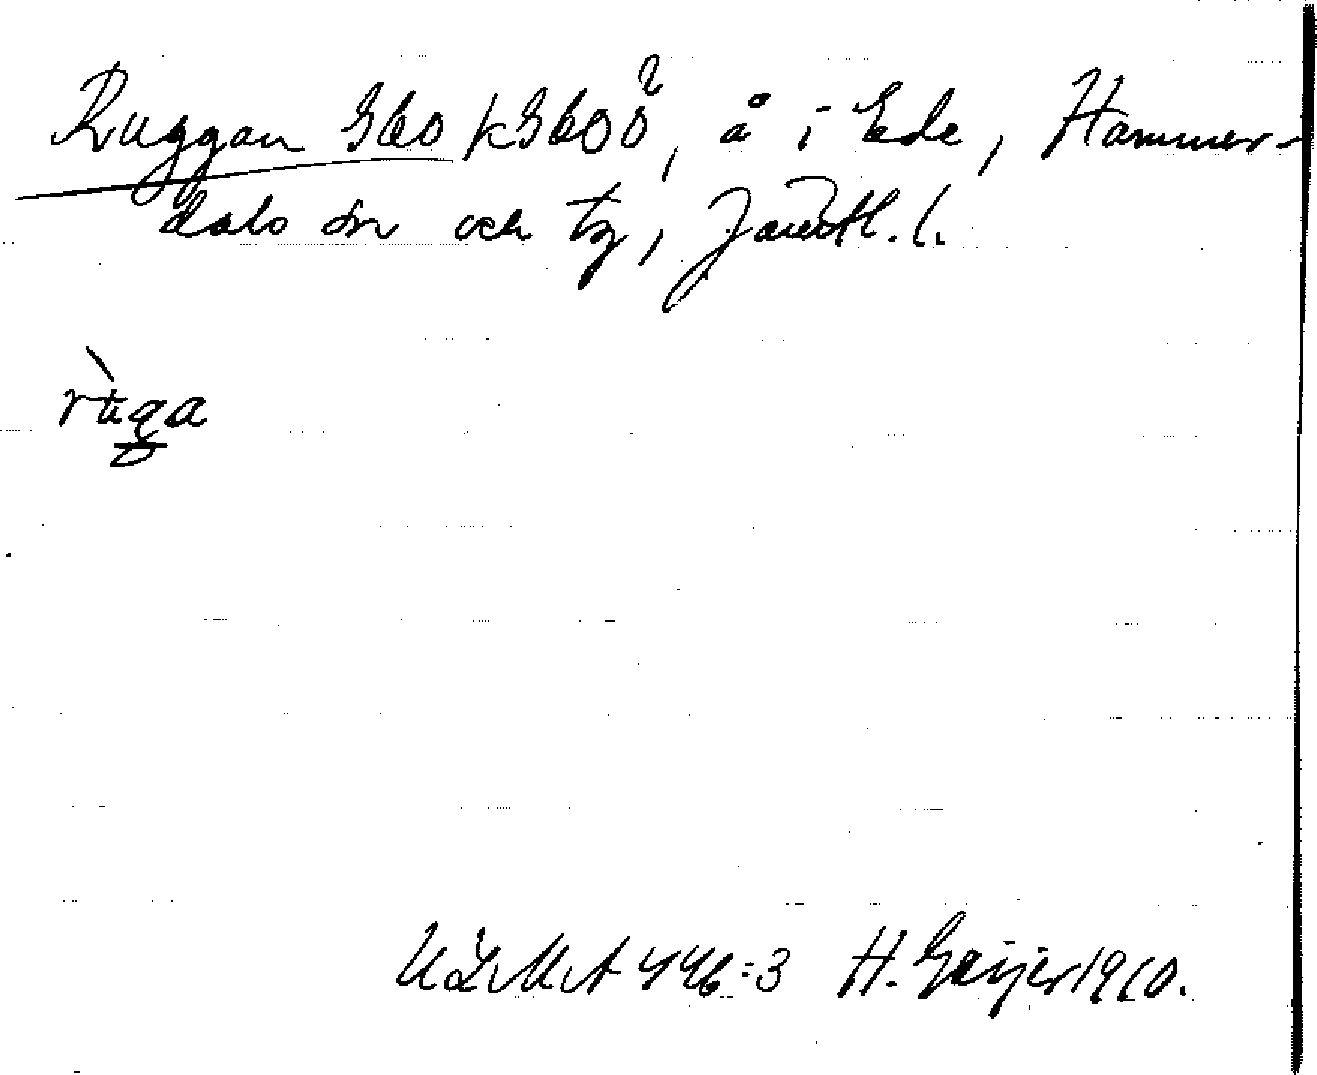 Ruggan Gbo kGbOö, å i Ede, Hammer-
dals sn och tg, Jämtl. l.
rùga
ULMA 446:3 H. Geijer 1910.